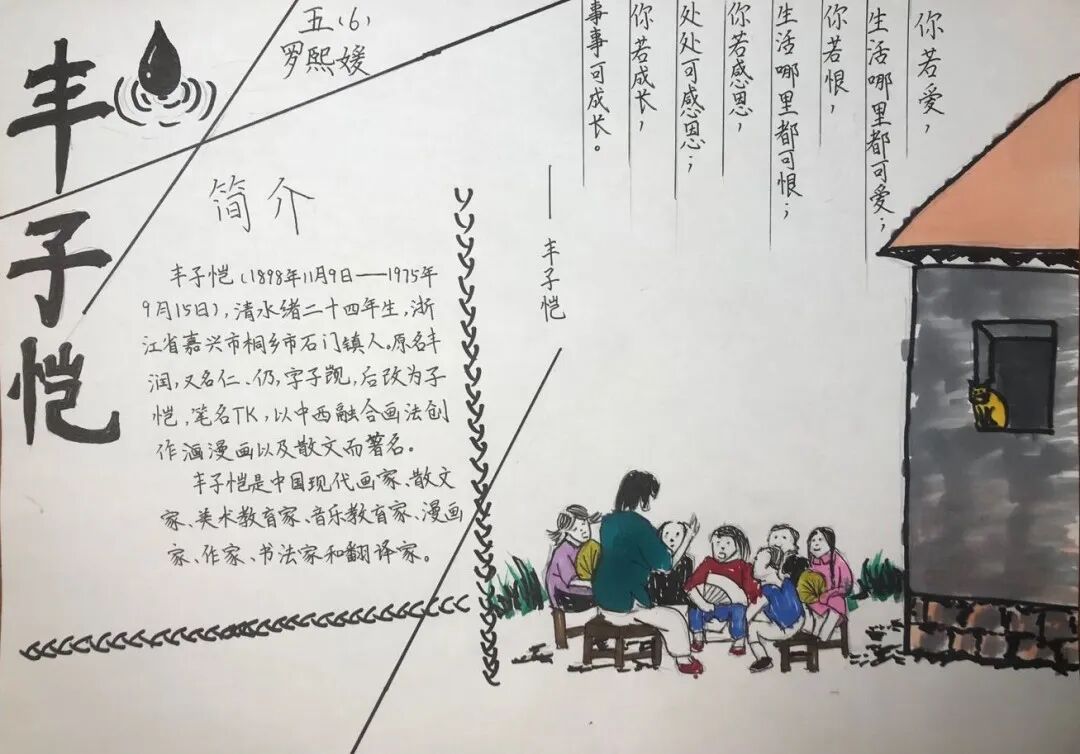 丰子恺
五(6)
罗熙媛
简介
丰子恺(1898年11月9日——1975年
9月15日),清水绪二十四年生,浙
江省嘉兴市桐乡市石门镇人。原名丰
润,又名仁、仍,字子觊,后改为子
恺,笔名TK,以中西融合画法创
作洏漫画以及散文而著名。
丰子恺是中国现代画家、散文
家、美术教育家、音乐教育家、漫画
家、作家、书法家和翻译家。
你若爱,
生活哪里都可爱;
你若恨,
生活哪里都可恨;
你若感恩,
处处可感恩;
你若成长,
事事可成长。
——丰子恺